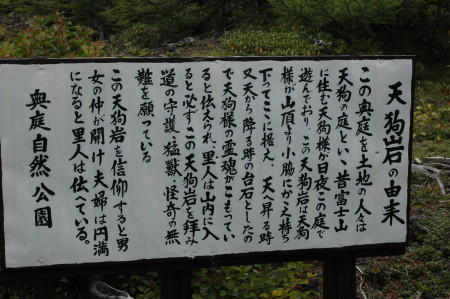 天狗岩の由来
この奥庭を土地の人々は
天狗の庭といい昔富士山
に住む天狗様が日夜この庭で
遊んでおりこの天狗岩は天狗
様が山頂より小脇にかゝえ持ち
下てここに据え天へ昇る時
又天から降る時の台石としたの
で天狗様の霊魂がこもってい
ると伝えられ里人は山内に入
ると必ずこの天狗岩を拝み
道の守護猛獣怪奇の無
難を願っている
この天狗岩を信仰すると男
女の仲が開け夫婦は円満
になると里人は伝へている。
奥庭自然公園